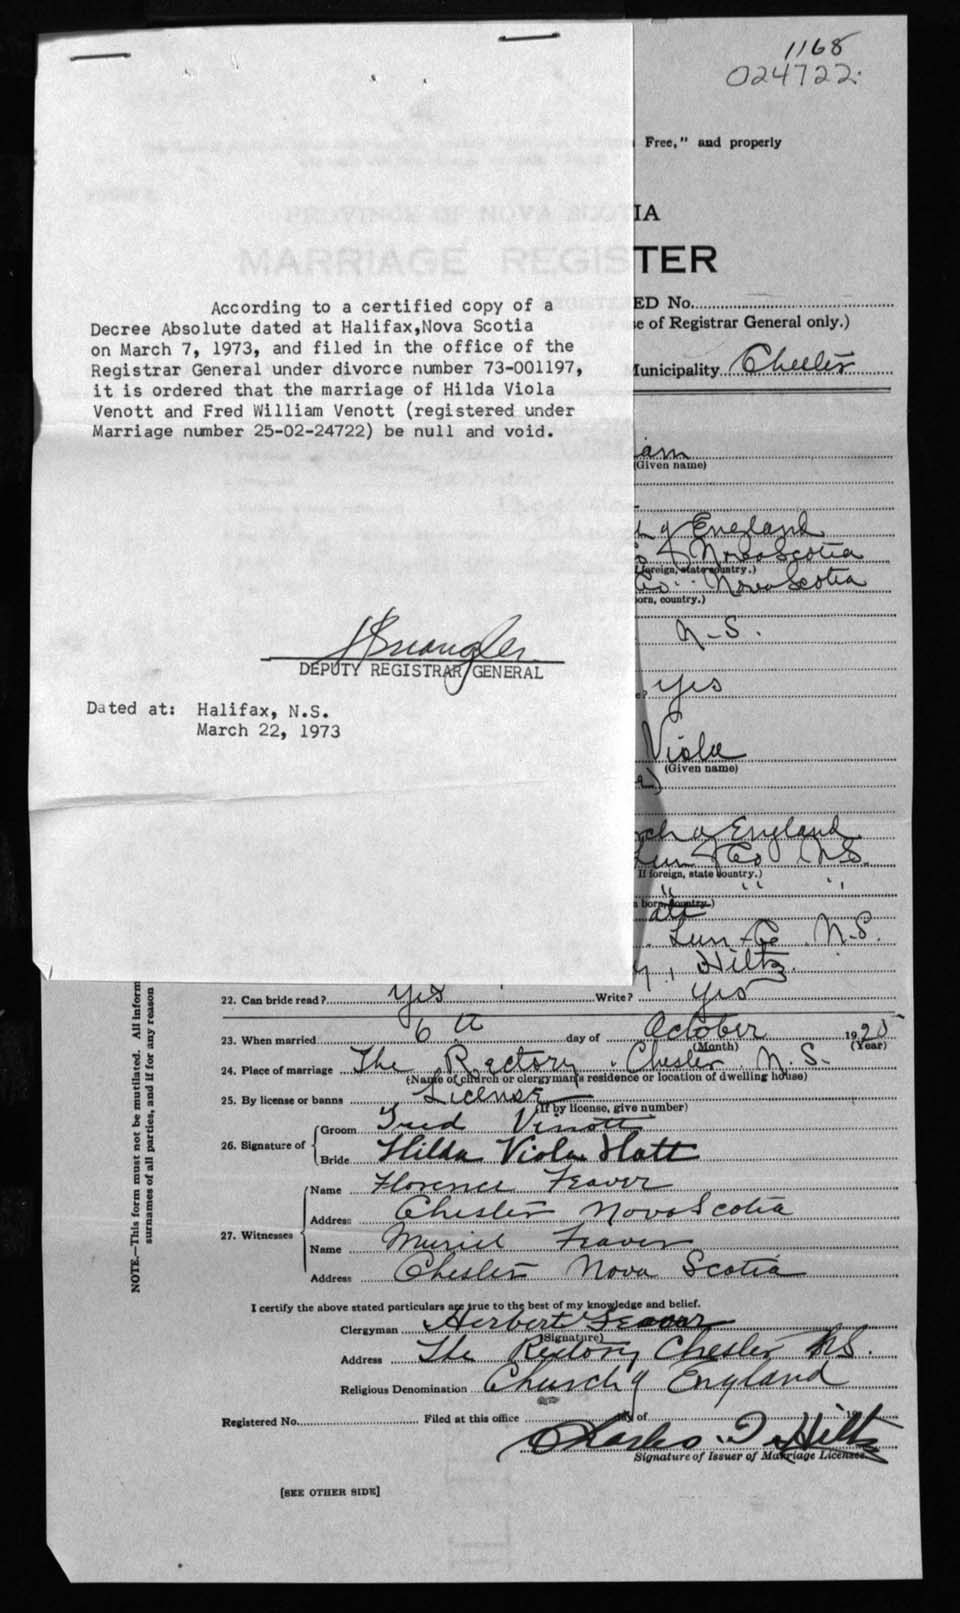 1168
024722.
Free," and properly
IA
TER
ED No.
e of Registrar General only.)
Municipality Chester
iam
(Given name)
of England
Nova Scotia
foreign, state country.)
Co. Nova Scotia
orn, country.)
N-S.
yes
Viola
(Given name)
rch of England
Lun Co N.S.
If foreign, state country.)
" " "
born, country.)
att
Lun Co N.S.
Hiltz.
According to a certified copy of a
Decree Absolute dated at Halifax,Nova Scotia
on March 7, 1973, and filed in the office of the
Registrar General under divorce number 73-001197,
it is ordered that the marriage of Hilda Viola
Venott and Fred William Venott (registered under
Marriage number 25-02-24722) be null and void.
DEPUTY REGISTRAR GENERAL
Dated at: Halifax, N.S.
March 22, 1973
NOTE.—This form must not be mutilated. All inform
surnames of all parties, and if for any reason
22. Can bride read? yes Write? yes
23. When married 6th day of October 1925
(Month) (Year)
24. Place of marriage The Rectory. Chester N.S.
(Name of church or clergyman's residence or location of dwelling house)
25. By license or banns License
(If by license, give number)
26. Signature of
Groom Fred Vinott
Bride Hilda Viola Hatt
27. Witnesses
Name Florence Feaver
Address Chester Nova Scotia
Name Muriel Feaver
Address Chester Nova Scotia
I certify the above stated particulars are true to the best of my knowledge and belief.
Clergyman Herbert Feaver
(Signature)
Address The Rectory Chester N.S.
Religious Denomination Church of England
Registered No. Filed at this office day of 19
Charles Hiltz
Signature of Issuer of Marriage Licenses
[SEE OTHER SIDE]